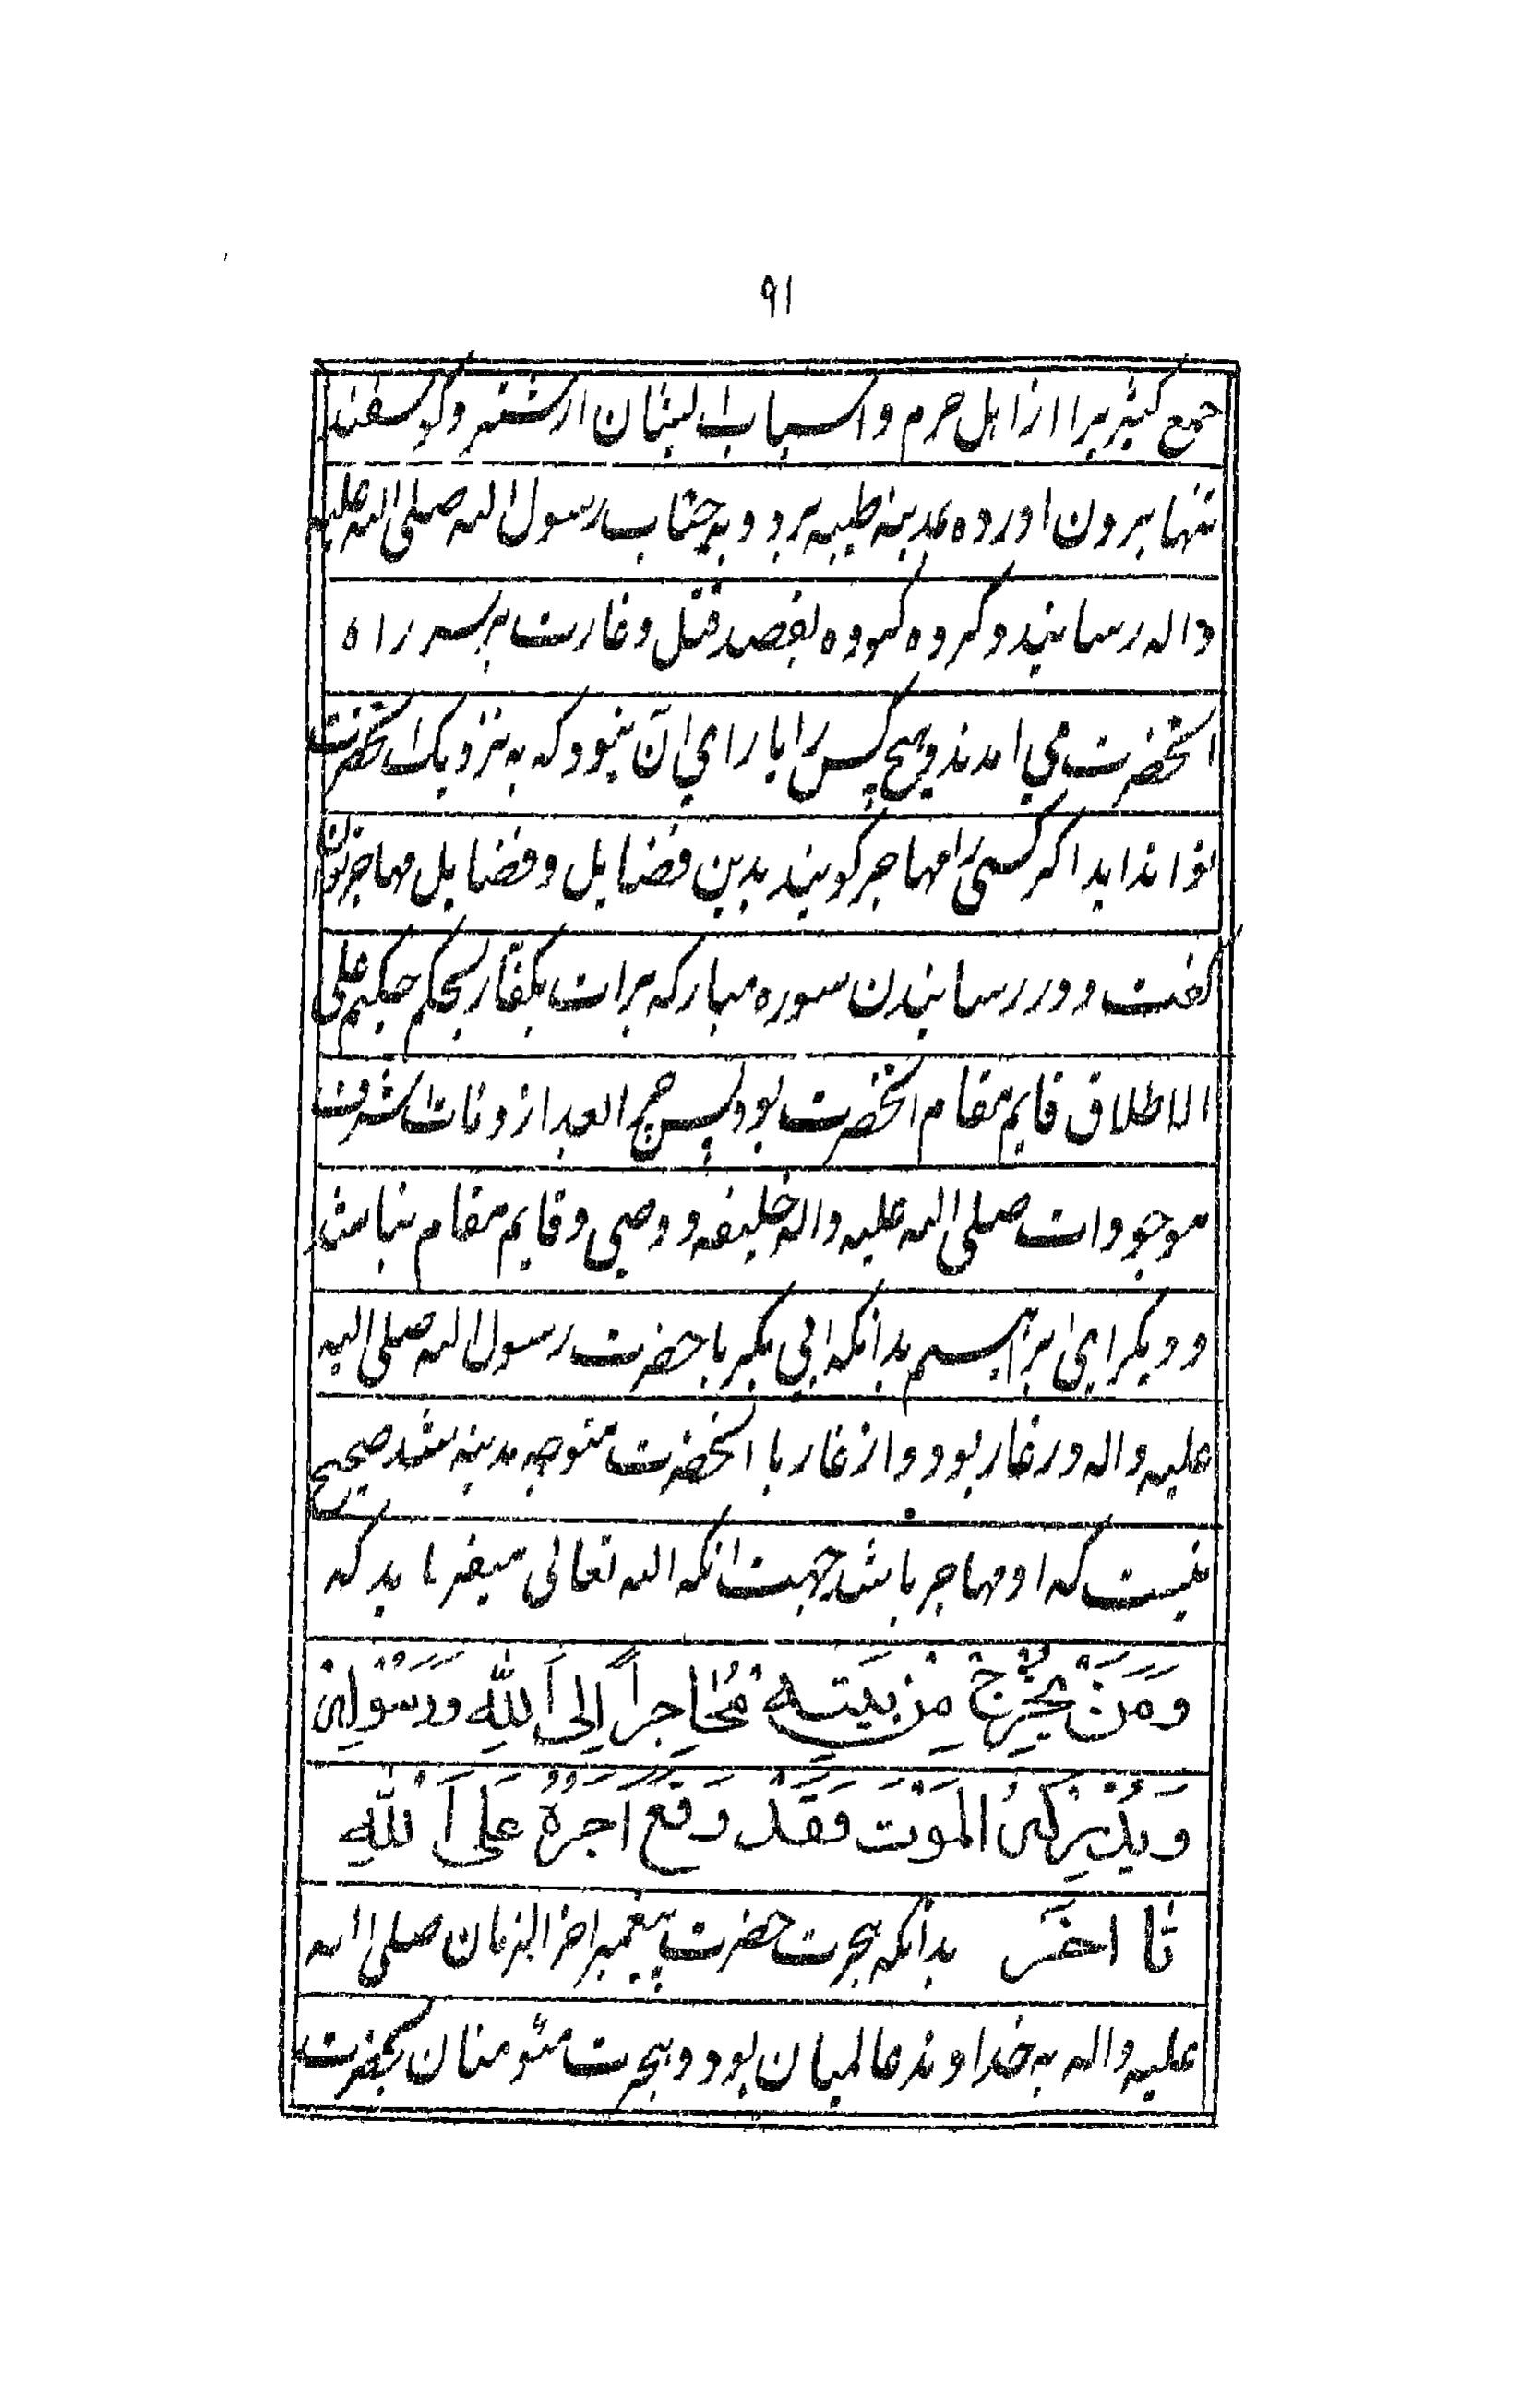 ۹۱
جمع کثیر را از اهل حرم و اسباب ایشان از شتر و گوسفند
تنها بیرون اورده بمدینه طیبه برد و به جناب رسول الله صلی الله علیه
واله رسانید و گروه گروه بقصد قتل و غارت بر سر راه
انحضرت می امدند و هیچ کس را یارای آن نبود که به نزدیک انحضرت
تواند اید اگر کسی را مهاجر گویند بدین فضایل و فضایل مهاجر توان
گفت و در رسانیدن سوره مبارکه برات بکفار بحکم حکیم علی
الاطلاق قایم مقام انحضرت بود پس چرا بعد از وفات اشرف
موجودات صلی الله علیه واله خلیفه و وصی و قایم مقام نباشد
و دیگر ای ابراهیم بدانکه ابی بکر با حضرت رسول الله صلی الله
علیه واله در غار بود و از غار با انحضرت متوجه مدینه شد صحیح
نیست که او مهاجر باشد جهت انکه الله تعالی میفرماید که
وَمَنْ يَخْرُجْ مِنْ بَيْتِهِ مُهَاجِراً إِلَى اللهِ وَرَسُولِهِ
ويُدْرِكهُ المَوْتَ فَقَدْ وَقَعَ اَجْرُهُ عَلَى اَللهِ
تا اخر بدانکه هجرت حضرت پیغمبر اخر الزمان صلی الله
علیه واله به خداوند عالمیان بود و هجرت مئومنان بحضرت